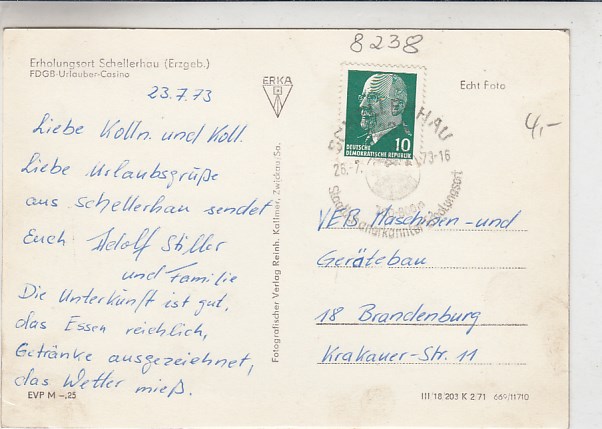 8238
Erholungsort Schellerhau (Erzgeb.)
FDGB-Urlauber-Casino
23.7.73
Liebe Kolln. und Koll.
Liebe Urlaubsgrüße
aus Schellerhau sendet
Euch Adolf Stiller
und Familie
Die Unterkunft ist gut,
das Essen reichlich,
Getränke ausgezeichnet,
das Wetter mieß.
EVP M –.25
ERKA
Fotografischer Verlag Reinh. Kallmer, Zwickau-Sa.
Echt Foto
4,-
10
DEUTSCHE
DEMOKRATISCHE REPUBLIK
HAU
73-16
Staatl. anerkannter Erholungsort
VEB Maschinen-und
Gerätebau
18 Brandenburg
Krakauer-Str. 11
III 18 203 K 2 71 669/11710